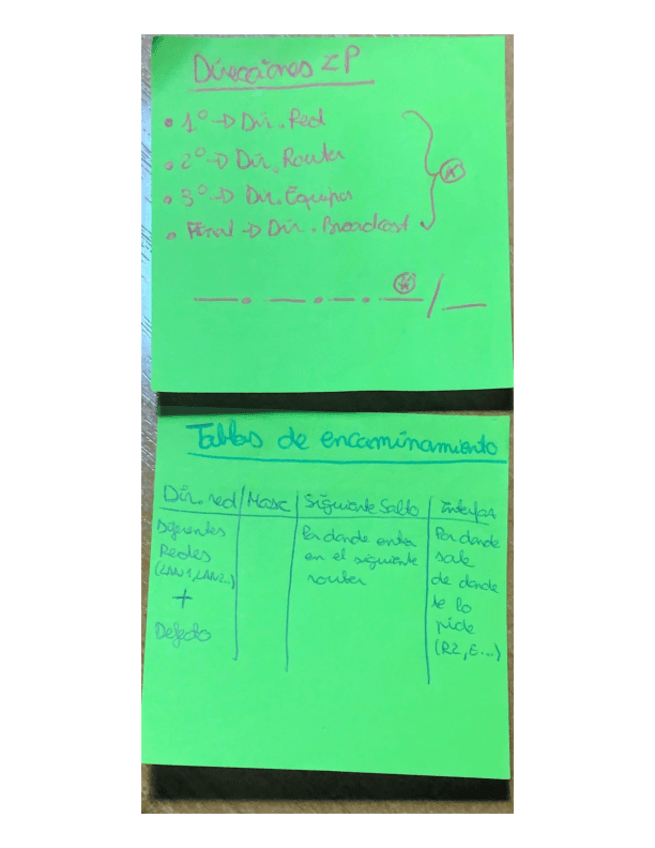 Direcciones IP
• 1º → Dir. Red
• 2º → Dir. Router
• 3º → Dir. Equipos
• Final → Dir. Broadcast
__.__.__.__/__
Tablas de encaminamiento
Dir. red | Masc | Siguiente Salto | Interfaz
Diferentes Redes (LAN1, LAN2..) + Defecto
Por donde entra en el siguiente router
Por donde sale de donde te lo pide (R2, E...)